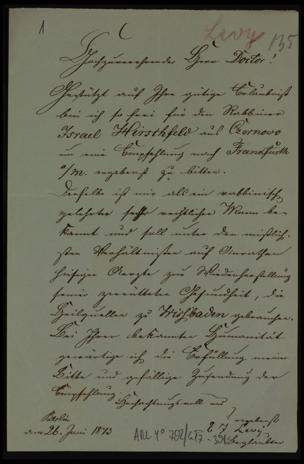 1
Levy
135
Hochzuverehrender Herr Doctor!
Gestützt auf Ihre gütige Erlaubniß
bin ich so frei für den Rabbiner
Israel Hirschfeld aus Czernovo
um eine Empfehlung nach Frankfurt
a/m. ergebenst zu bitten.
Derselbe ist mir als ein rabbinisch
gelehrter sehr rechtlicher Mann be-
kannt und soll unter den mißlich-
sten Verhältnissen auf Anrathen
hiesiger Aerzte zur Wiederherstellung
seiner zerrütteten Gesundheit, die
Heilquellen zu Wiesbaden gebrauchen.
Bei Ihrer bekannten Humanität
gewärtige ich die Erfüllung meiner
Bitte und gefällige Zusendung der
Empfehlung
Hochachtungsvoll
ergebenst
Berlin
am 26. Juni 1873
Levy
ARC 4° 792/